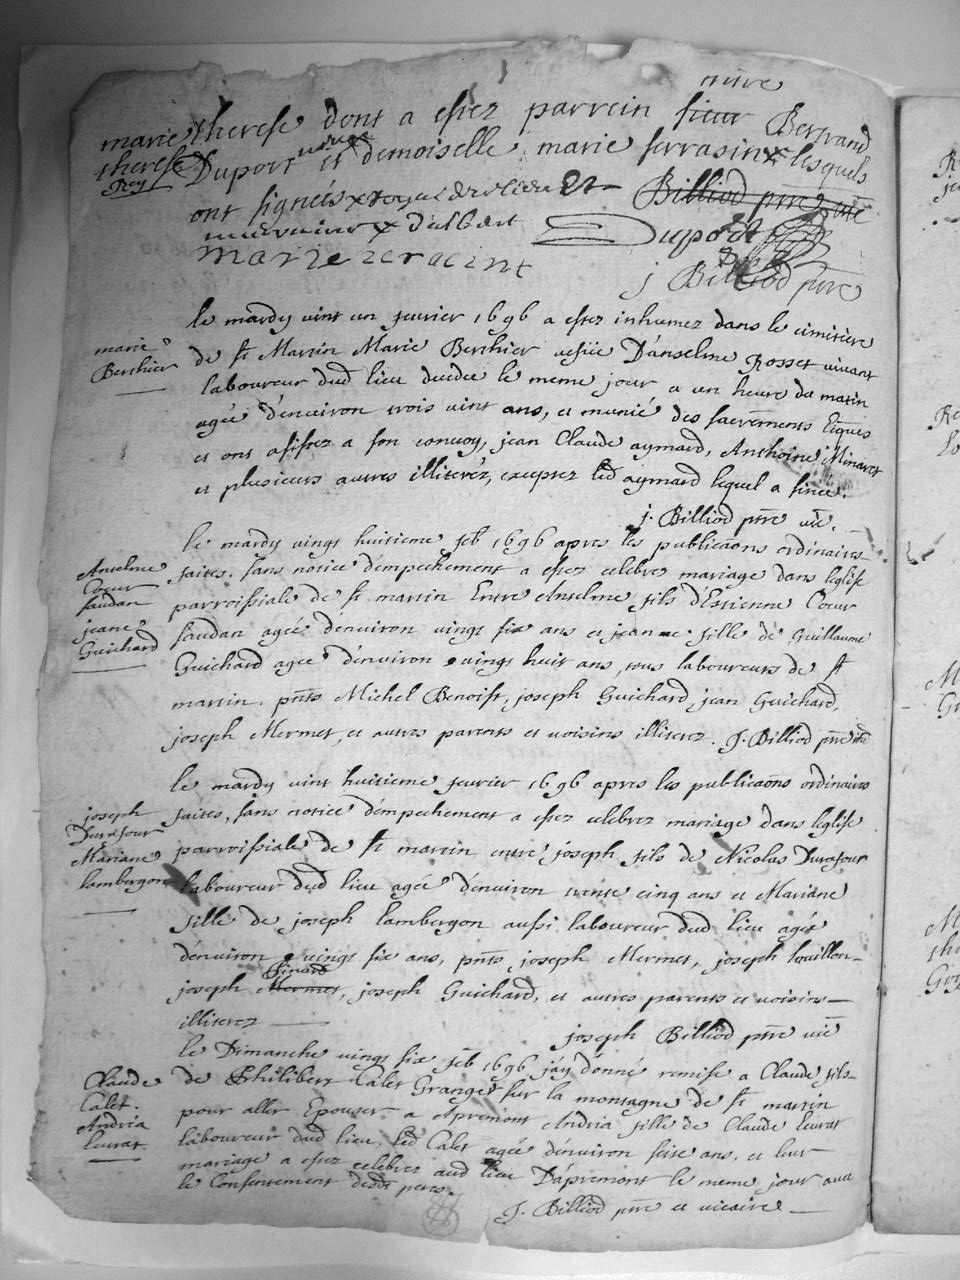 mitre
marie therese dont a estez parrein sieur Bertrand
therese Duport et demoiselle marie ferrasin lesquels
Roy
ont signéés Et Billiod ptre vic
d'albert Duport
marie
j Billiod ptre
le mardy vint un fevrier 1696 a estez inhumez dans le cimitiere
marie Berthier
de st Martin Marie Berthier vefue D'anselme Rosset vivant
laboureur dud lieu decedee le meme jour a un heure du matin
agéé d'environ trois vint ans, et munié des sacrements
et ont asistez a son convoy, jean Claude aymard, Anthoine Minaret
et plusieurs autres illiterez, exceptez led aymard lequel a sinee.
j. Billiod ptre vic.
le mardy vingt huitieme feb 1696 apres les publicaons ordinaires
Anselme Coeur faudan
faites, sans notice d'empechement a estez celebrez mariage dans leglise
parroissiale de st martin Entre Anselme fils d'Estienne Coeur
jeane Guichard
faudan agéé d'environ vingt six ans et jeanne fille de Guillaume
Guichard agéé d'environ vingt huit ans, tous laboureurs de st
martin. pnts Michel Benoist, joseph Guichard, jean Guichard,
joseph Mermet, et autres parents et voisins illiterez. J. Billiod ptre vic
le mardy vint huitieme fevrier 1696 apres les publicaons ordinaires
joseph Durafour
faites, sans notice d'empechement a estez celebrez mariage dans leglise
Mariane lambergon
parroissiale de st martin entre joseph fils de Nicolas Durafour
laboureur dud lieu agéé d'environ trente cinq ans et Mariane
fille de joseph lambergon aussi laboureur dud lieu agéé
d'environ vingt six ans, pnts joseph Mermet, joseph louillon
joseph Mermet, joseph Guichard, et autres parents et voisins
illiterez
joseph Billiod ptre vic
le Dimanche vingt six feb 1696 j'ay donné remise a Claude fils
Claude Calet.
de Philibert Calet Granger sur la montagne de st martin
Andria leurat
pour aller Epouser a Apremont Andria fille de Claude leurat
laboureur dud lieu led Calet agéé d'environ seize ans, et leur
mariage a estez celebrez aud lieu D'apremont le meme jour avec
le Consentement desdts peres.
J. Billiod ptre et vicaire